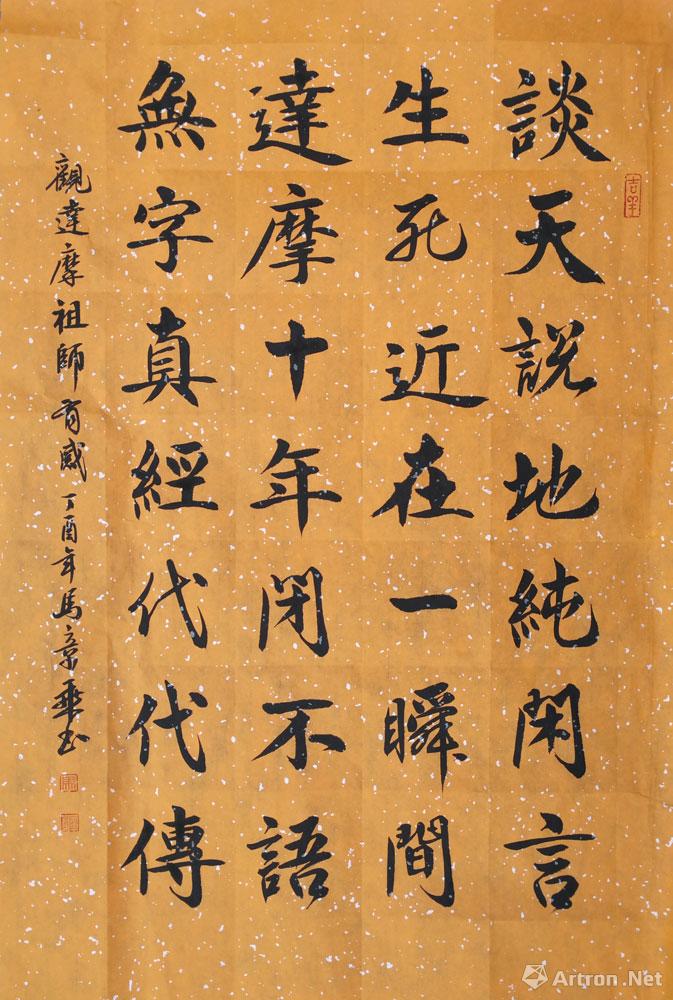 談天說地純閑言
生死近在一瞬間
達摩十年閉不語
無字真經代代傳
觀達摩祖師有感 丁酉年馬章乘书
Artron.Net